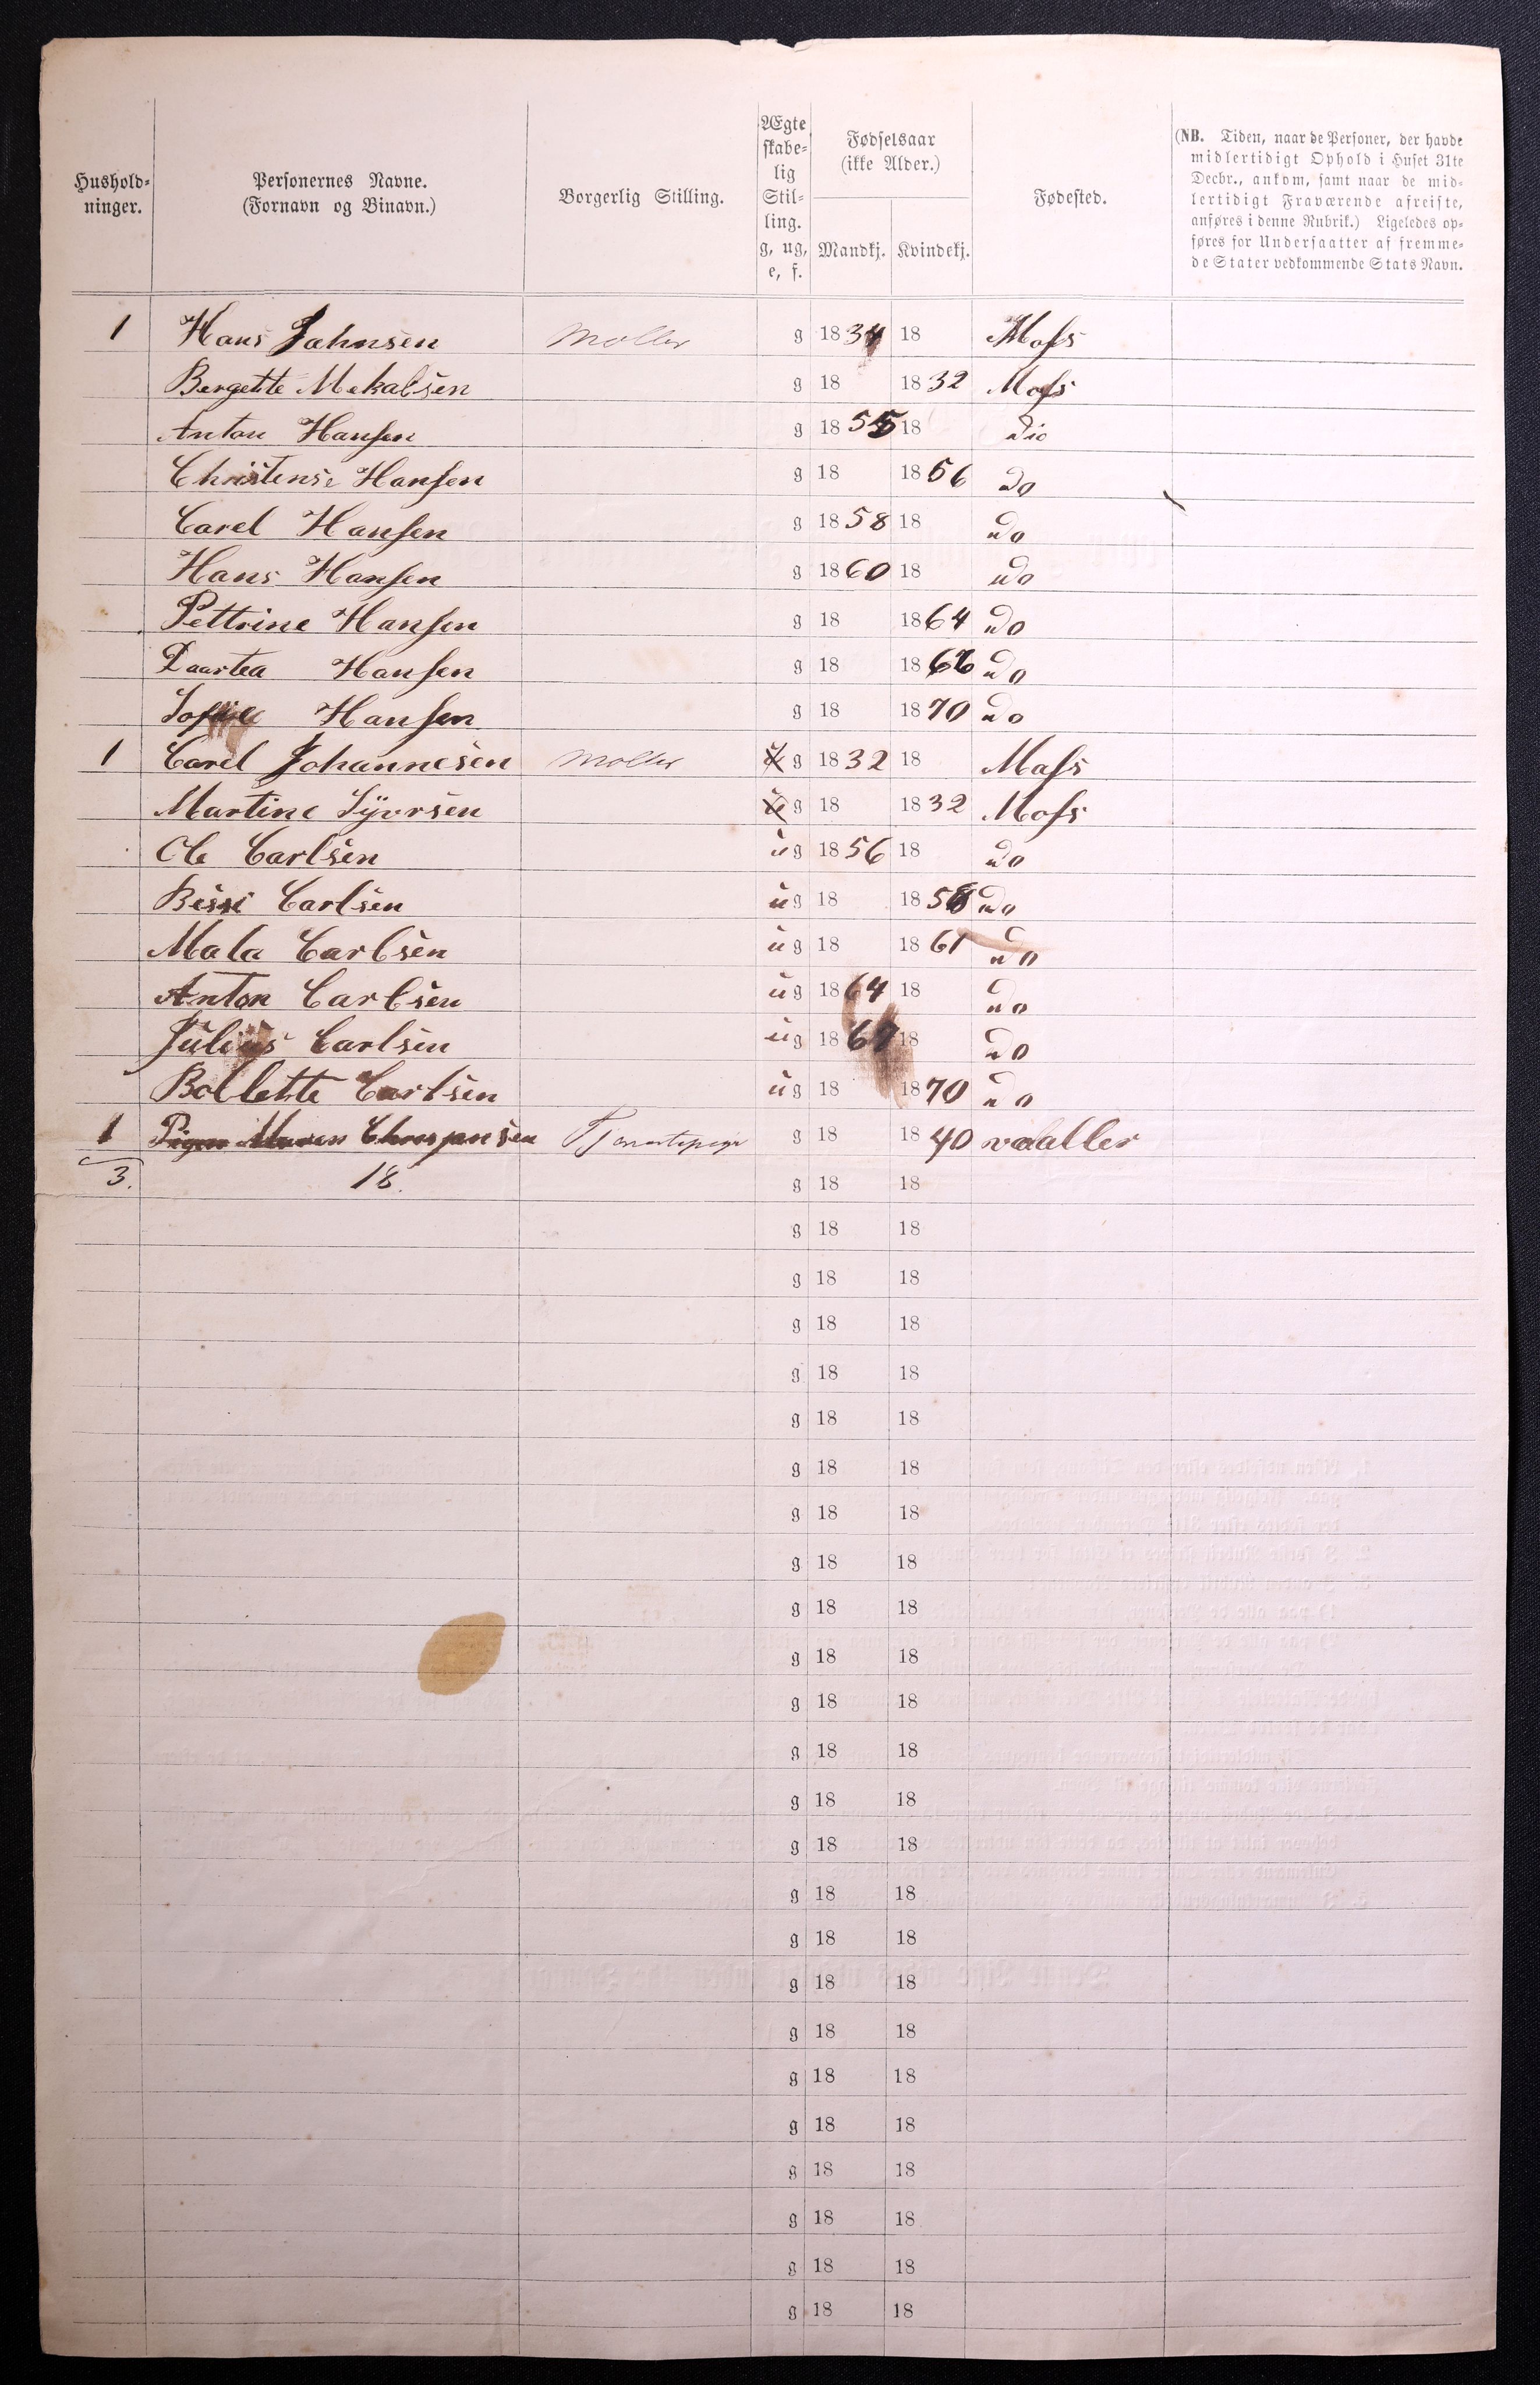 Hushold-
ninger.
Personernes Navne.
(Fornavn og Binavn.)
Borgerlig Stilling.
Ægte
skabe-
lig
Stil-
ling.
g, ug,
e, f.
Fødselsaar
(ikke Alder.)
Mandkj. Kvindekj.
Fødested.
(NB. Tiden, naar de Personer, der havde
midlertidigt Ophold i Huset 31te
Decbr., ankom, samt naar de mid-
lertidigt Fraværende afreiste,
anføres i denne Rubrik.) Ligeledes op-
føres for Undersaatter af fremme-
de Stater vedkommende Stats Navn.
1 Hans Jahnsen Moller g 1834 18 Moss
Bergette Mekalsen g 18 1832 Moss
Anton Hansen g 1855 18 Dio
Christense Hansen g 18 1856 do
Carel Hansen g 1858 18 do
Hans Hansen g 1860 18 do
Pettrine Hansen g 18 1864 do
Daartea Hansen g 18 1866 do
Sofie Hansen g 18 1870 do
1 Carel Johannesen Moller g 1832 18 Mass
Martine Syvrsen g 18 1832 Moss
Ole Carlsen ug 1856 18 do
Bessi Carlsen ug 18 1858 do
Mala Carlsen ug 18 1861 do
Anton Carlsen ug 1864 18 do
Julius Carlsen ug 1867 18 do
Bollette Carlsen ug 18 1870 do
1 Pigen Maren Chresjansen Tjenestepige g 18 1840 vaaller
3. 18. g 18 18
g 18 18
g 18 18
g 18 18
g 18 18
g 18 18
g 18 18
g 18 18
g 18 18
g 18 18
g 18 18
g 18 18
g 18 18
g 18 18
g 18 18
g 18 18
g 18 18
g 18 18
g 18 18
g 18 18
g 18 18
g 18 18
g 18 18
g 18 18
g 18 18